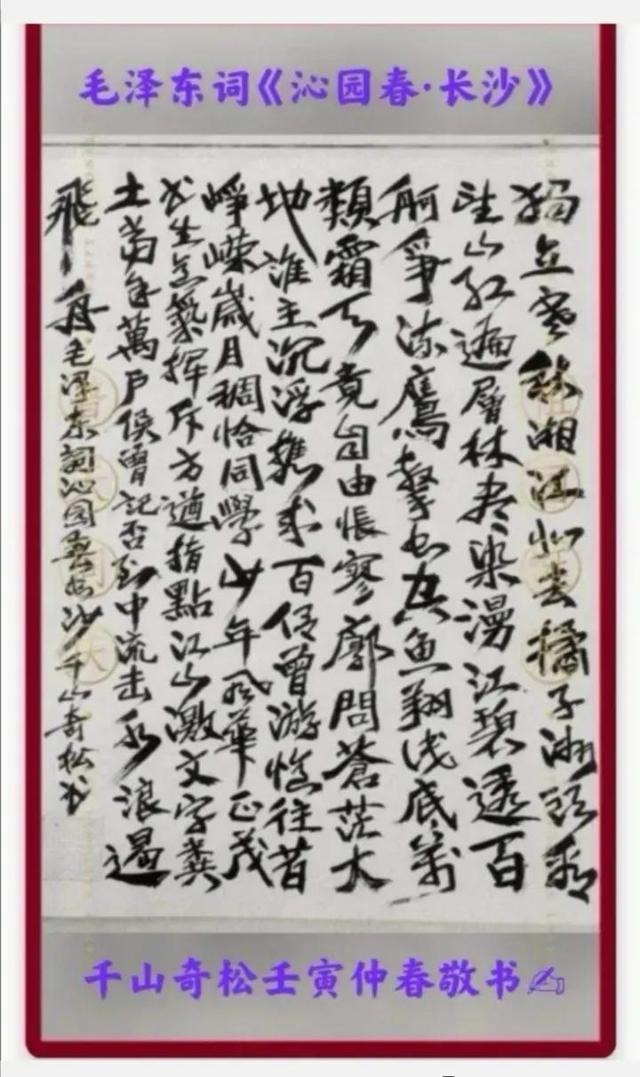 毛泽东词《沁园春·长沙》
獨立寒秋湘江北去橘子洲頭看
山红遍層林盡染漫江碧透百
舸爭流鷹擊长空魚翔浅底萬
類霜天竟自由悵寥廓問蒼茫大
地誰主沉浮携来百侣曾游憶往昔
崢嶸歲月稠恰同學少年风華正茂
书生意氣揮斥方遒指點江山激文字糞
土當年萬户侯曾記否到中流击水浪遏
飛舟毛澤东詞沁园春长沙千山奇松书
千山奇松壬寅仲春敬书✍